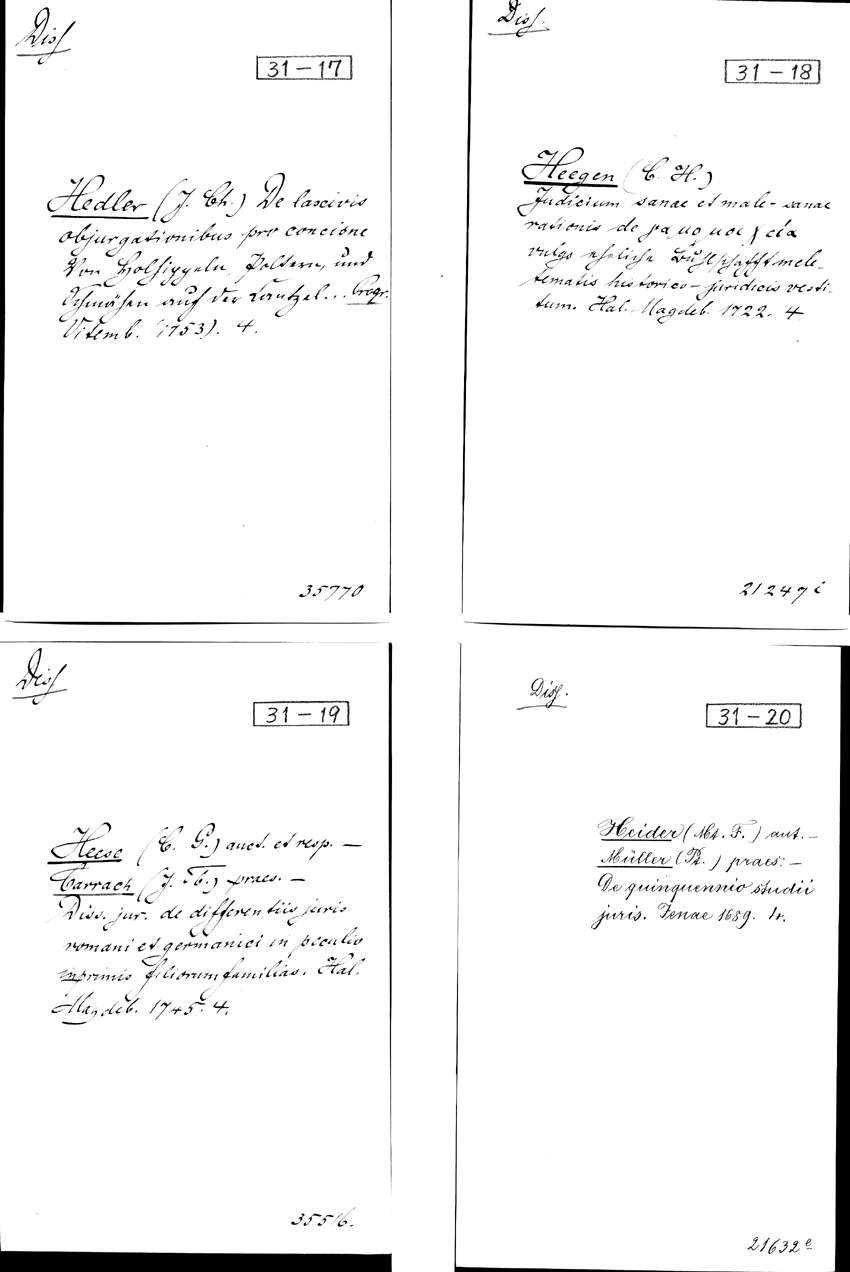 Diss
31-17
Hedler (J. Ch.) De lascivis
objurgationibus pro concione
Von Holhippeln, Poltern, und
Schmähen auf der Cantzel... Progr.
Vitemb. (1753). 4.
35770
Diss.
31-18
Heegen (C. H.)
Judicium sanae et male-sanae
rationis de
vulgo eheliche Buhlschafft mele-
tematis historico-juridicis vesti-
tum. Hal. Magdeb. 1722. 4
21247 i
Diss
31-19
Heese (C. G.) auct. et resp. —
Carrach (J. Tb.) praes. —
Diss. jur. de differentiis juris
romani et germanici in peculio
inprimis filiorumfamilias. Hal.
Magdeb. 1745. 4.
35516.
Diss.
31-20
Heider (Mt. F.) aut. —
Müller (Pt.) praes. —
De quinquennio studii
juris. Jenae 1689. 4.
21632 e